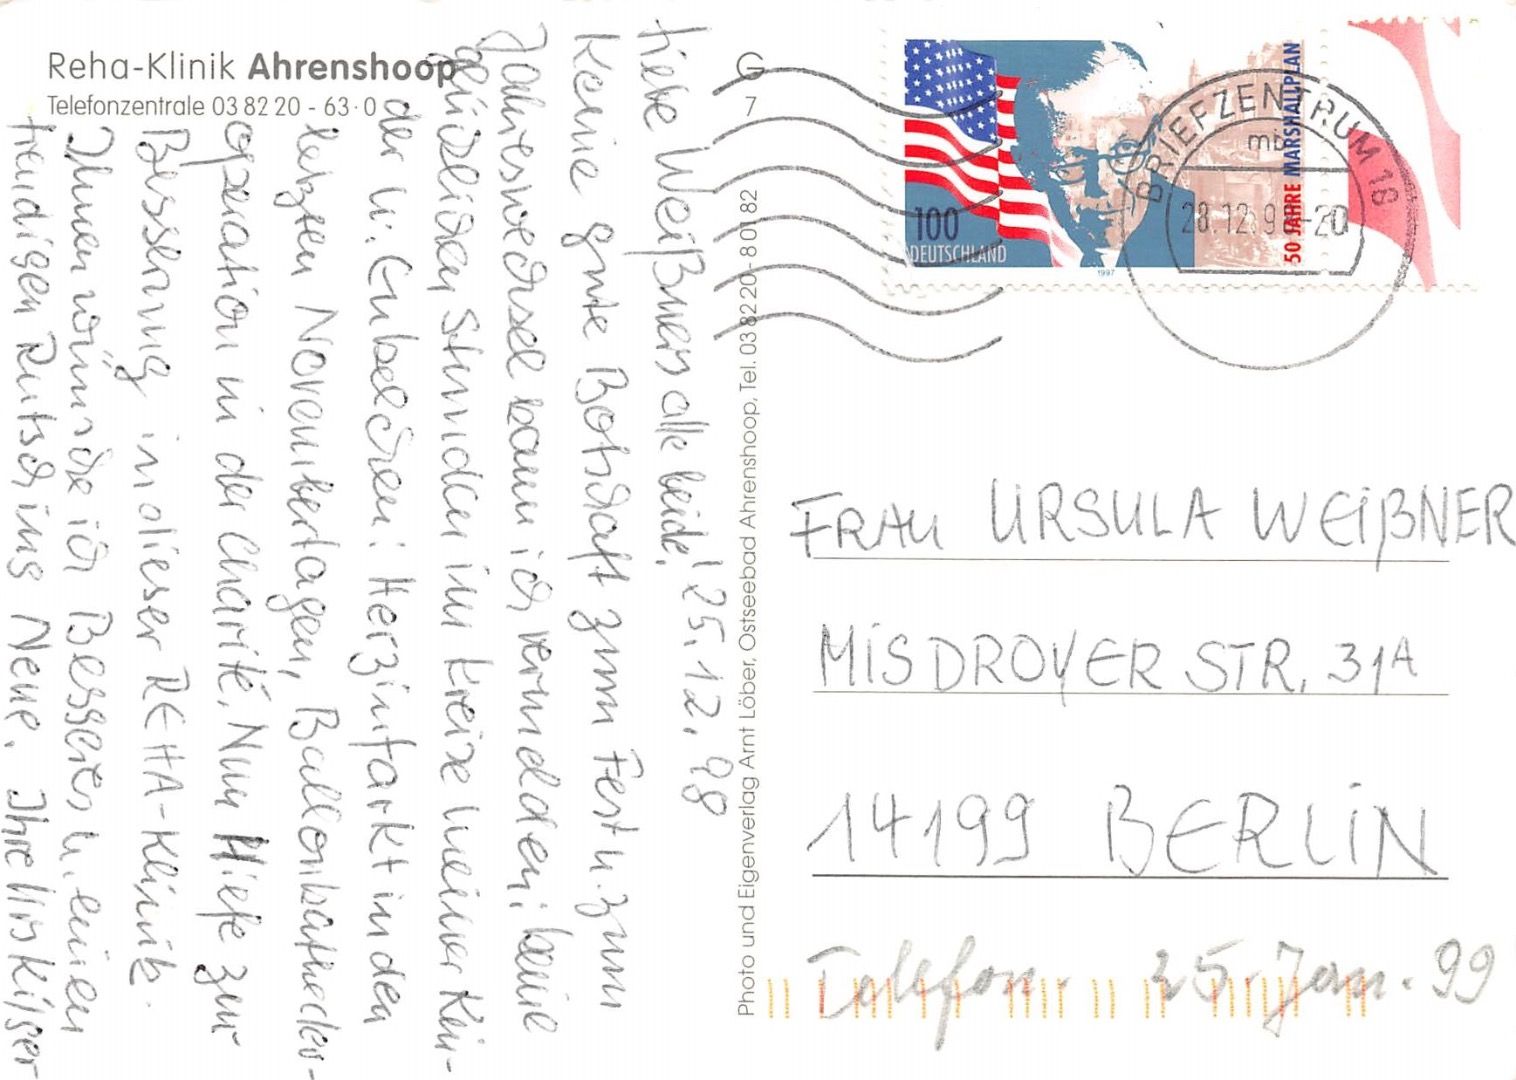 Reha-Klinik Ahrenshoop
Telefonzentrale 03 82 20 - 63·0
25.12.98
Liebe Weißners alle beide!
Keine gute Botschaft zum Fest u. zum
Jahreswechsel kann ich vermelden: keine
glückliden Stunden im Kreise meiner Kin-
der u. Enkelchen: Herzinfarkt in den
letzten Novembertagen, Ballonkatheder-
operation in der Charité. Nun Hiefe zur
Besserung in dieser REHA-Klinik.
Ihnen wünsche ich Besseres u. einen
freudigen Rutsch ins Neue. Ihre
G
7
Photo und Eigenverlag Arnt Löber, Ostseebad Ahrenshoop, Tel. 03 82 20 - 801 82
100
DEUTSCHLAND
50 JAHRE MARSHALLPLAN
1997
BRIEFZENTRUM 18
mb
28.12.9 -20
FRAU URSULA WEIßNER
MISDROYER STR. 31A
14199 BERLIN
Telefon. 25. Jan. 99